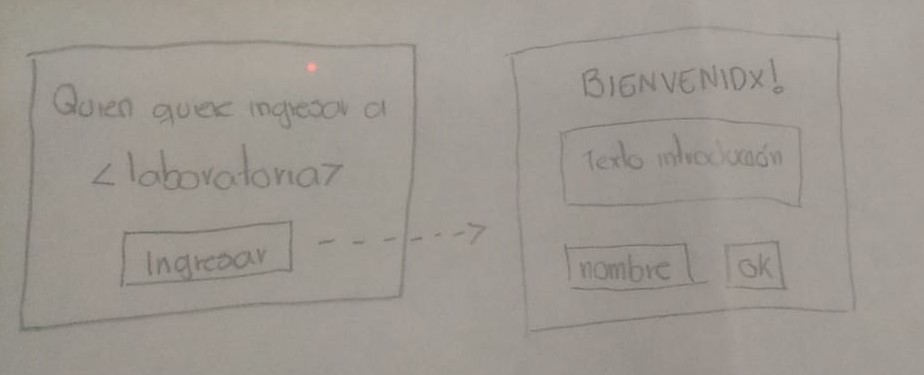 Quien quiere ingresar a
<laboratoria>
Ingresar
BIENVENIDX!
Texto introducción
nombre
OK